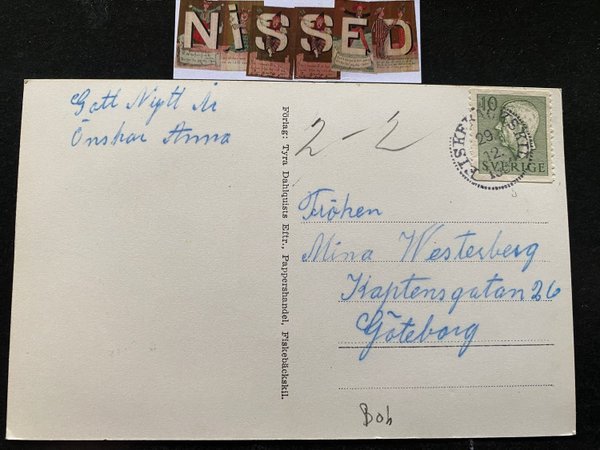 NiSSED
Gott Nytt År
Önskar Anna
Förlag: Tyra Dahlquists Eftr., Pappershandel, Fiskebäckskil.
2-2
10
SVERIGE
29
12
Fröken
Mina Westerberg
Kaptensgatan 26
Göteborg
Boh